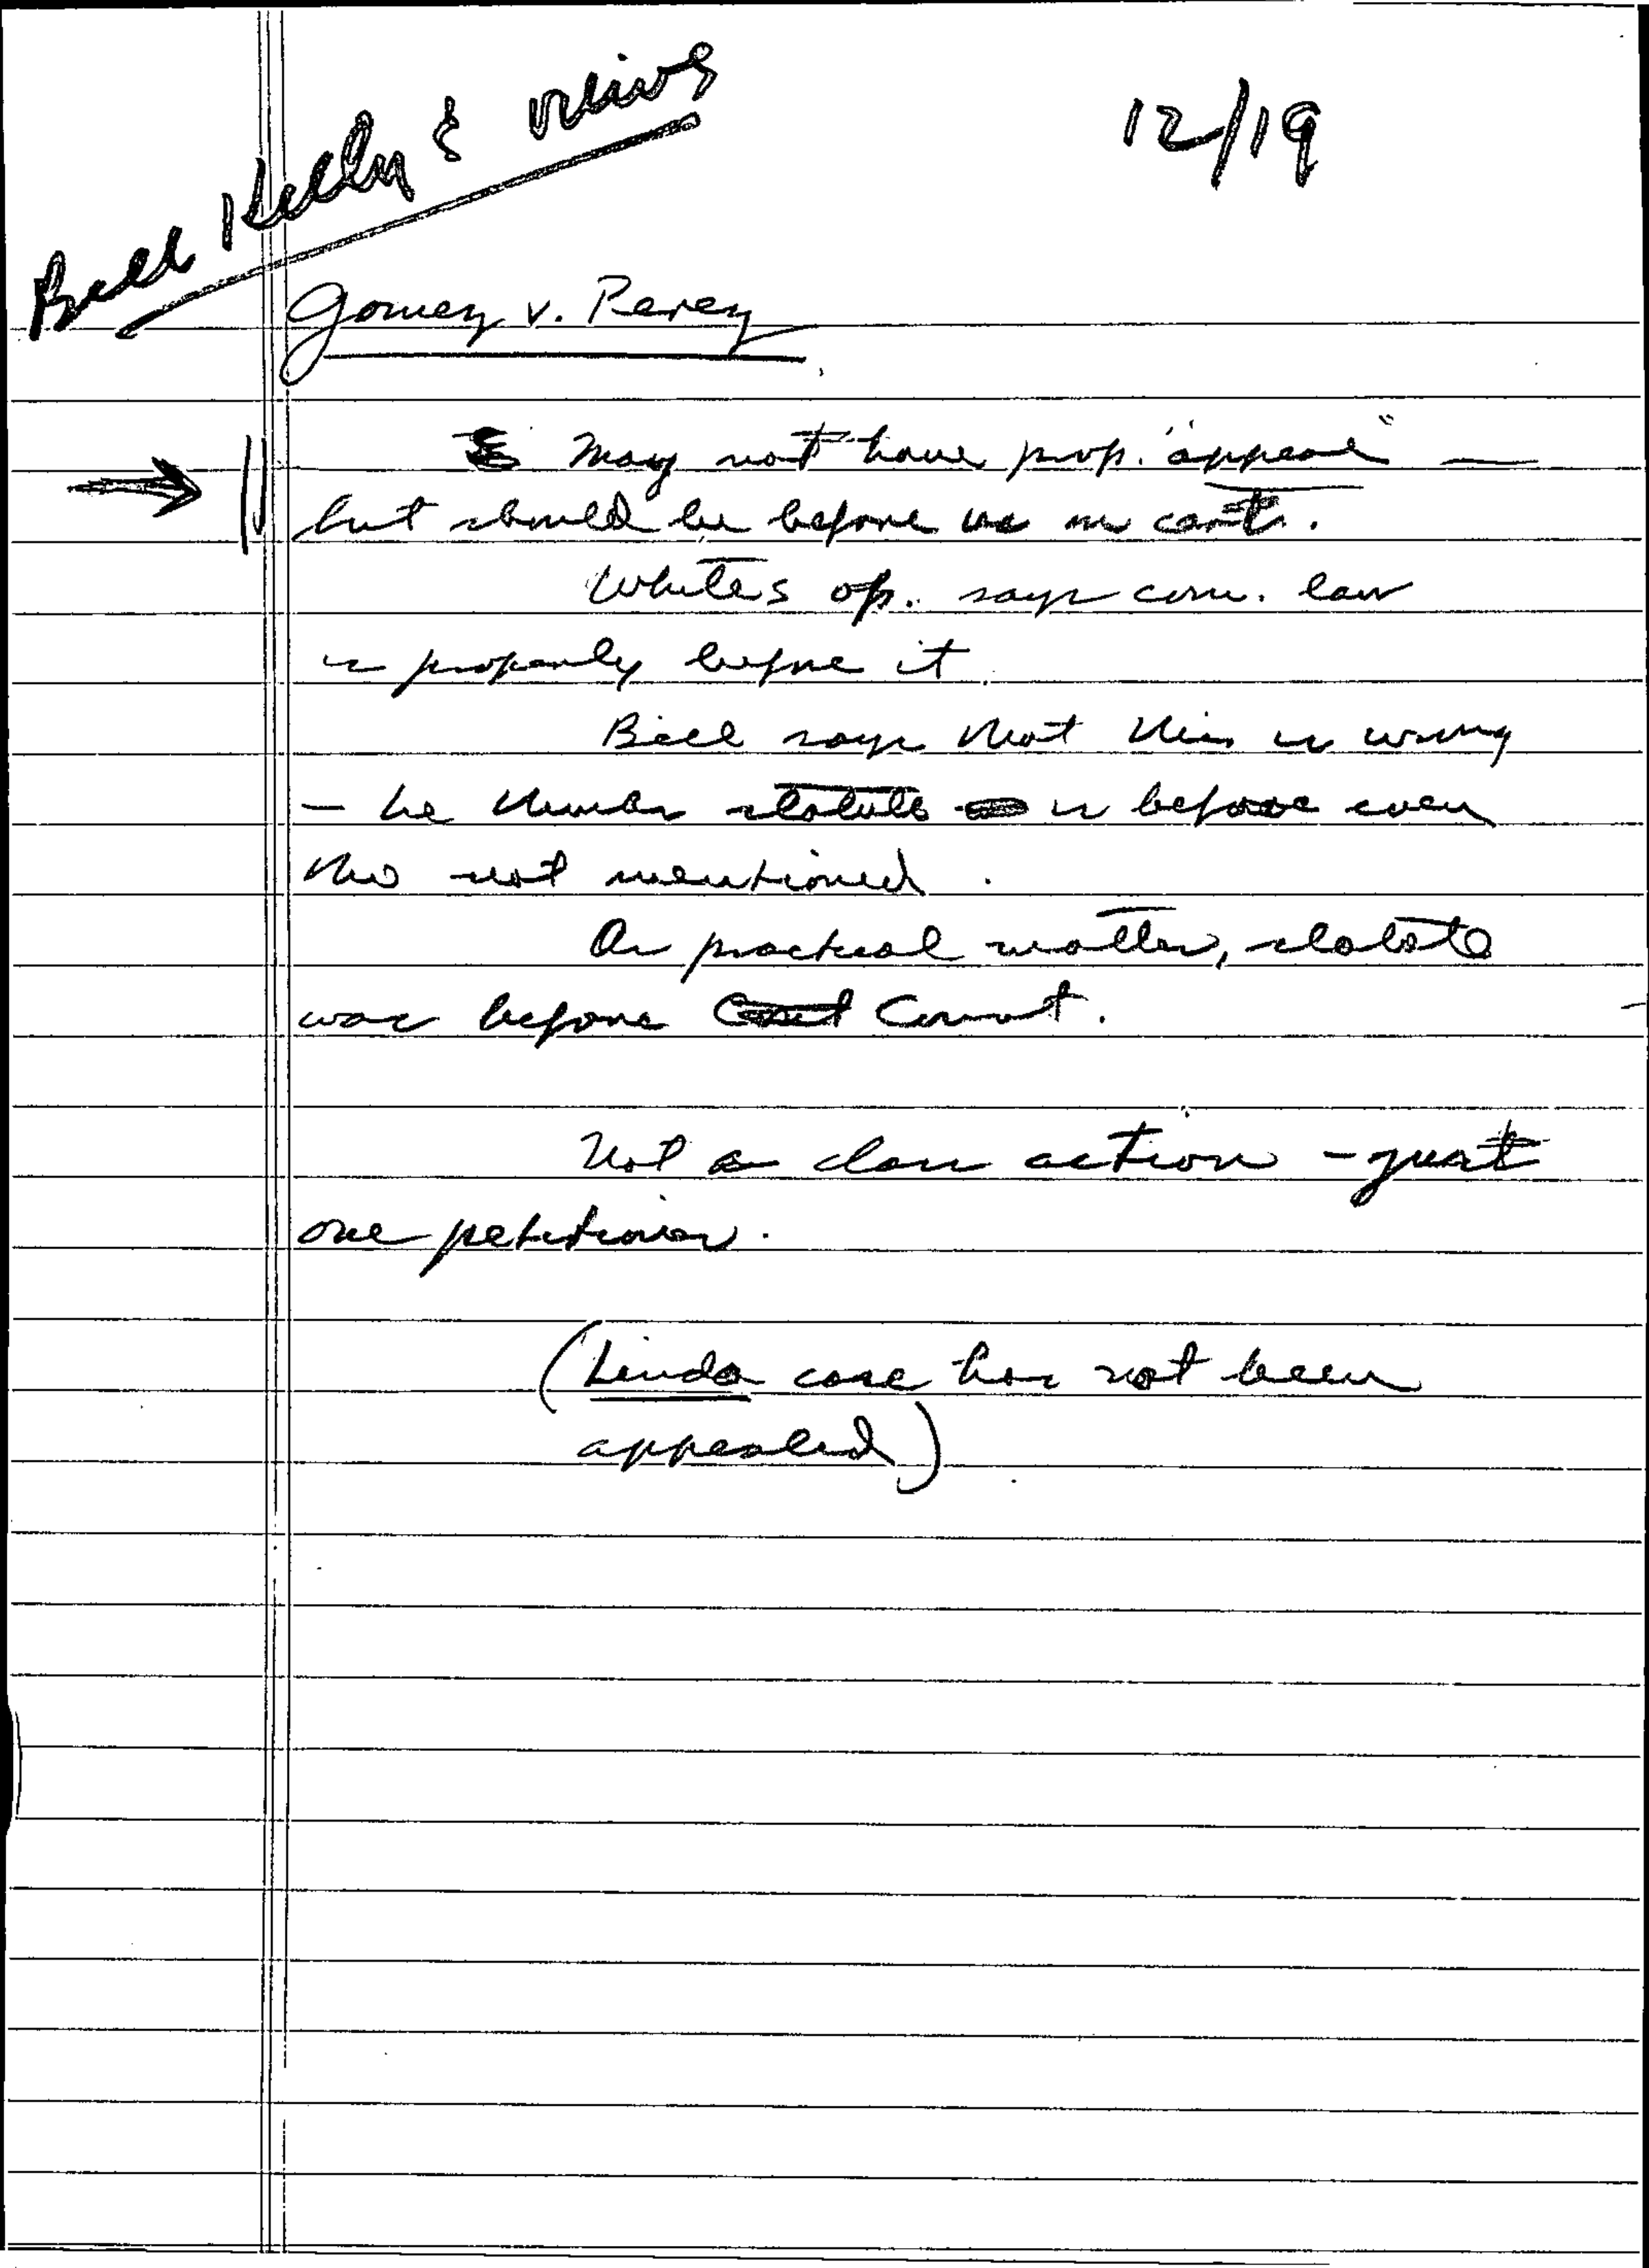 Bill Kelly's views
12/19
Gomez v. Perez
May not have prop. "appeal" —
but should be before us on cert.
White's op. says com. law
is properly before it.
Bill says that this is wrong
— he thinks statute is before even
tho not mentioned.
As practical matter, statute
was before Court.
Not a class action - just
one petitioner.
(Linda case has not been
appealed)